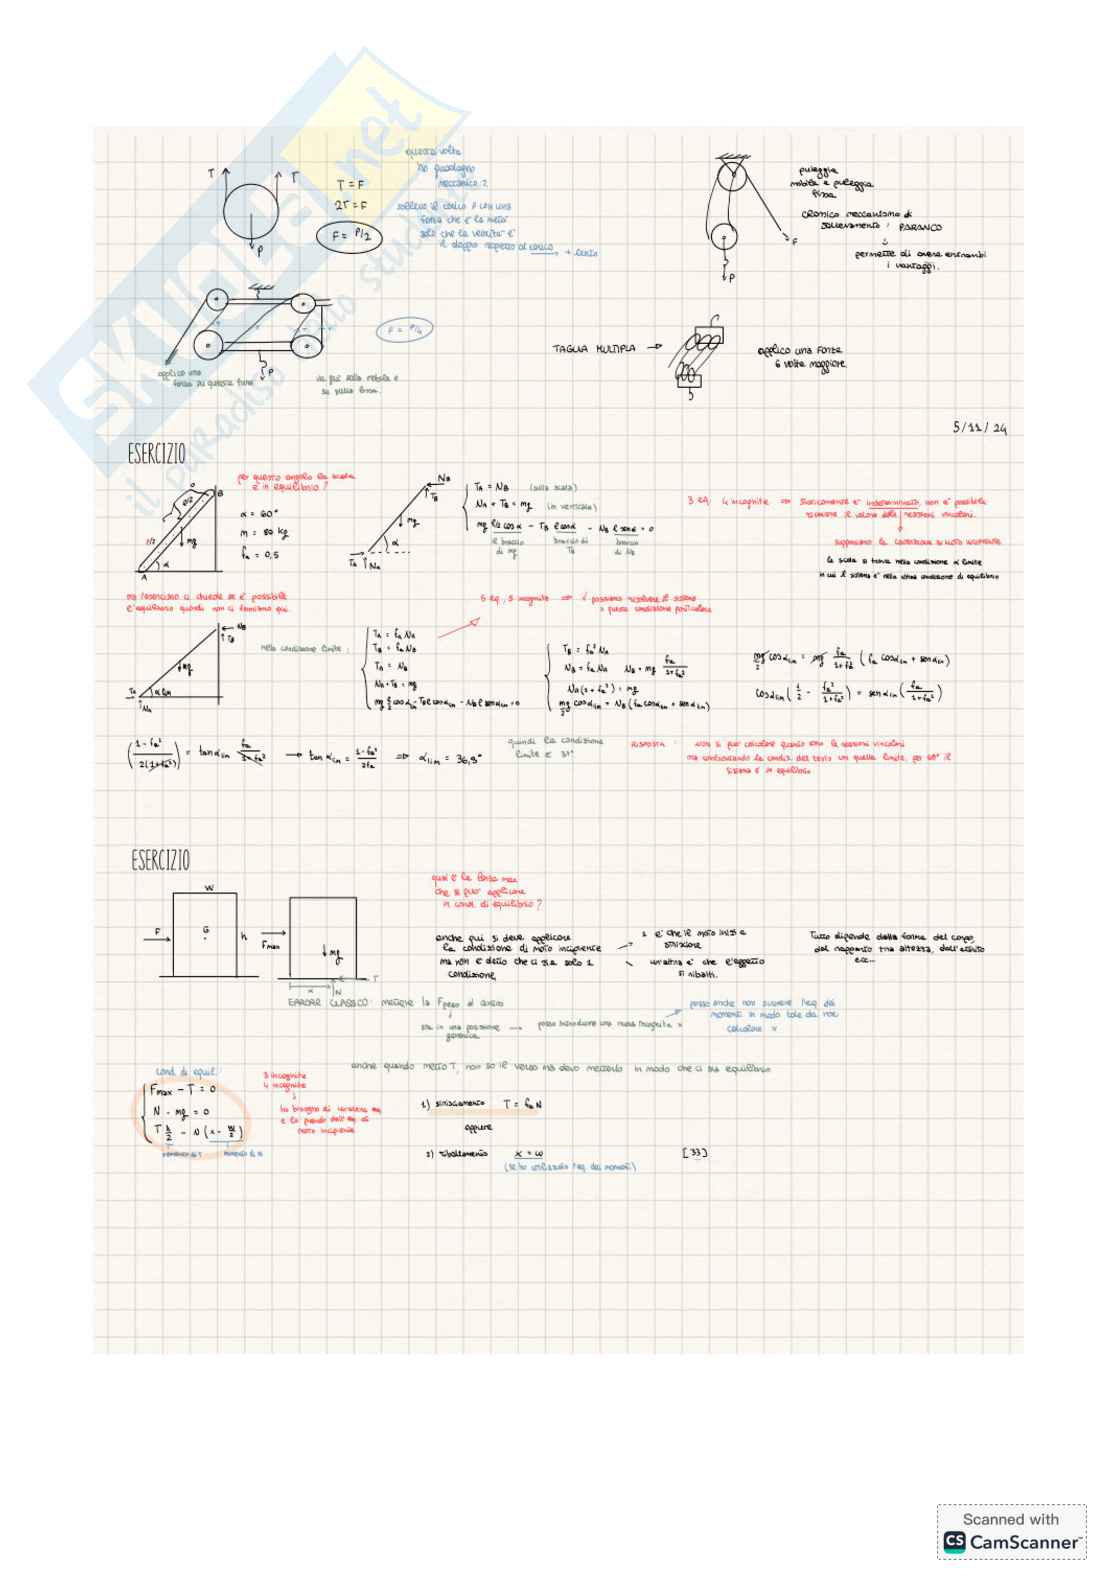 questa volta
ho guadagno
meccanico 2
T
T
P
T = F
2T = F
F = P/2
sollevo il carico P con una
forza che è la metà
solo che la velocità è
il doppio rispetto al carico → + lento
puleggia
mobile e puleggia
fissa
classico meccanismo di
sollevamento: PARANCO
permette di avere entrambi
i vantaggi.
F
P
F = P/4
applico una
forza su questa fune
P
TAGLIA MULTIPLA →
applico una FORZA
6 volte maggiore
5/11/24
ESERCIZIO
per questo angolo la scala
è in equilibrio?
B
l/2
l/2
mg
α
A
α = 60°
m = 80 kg
fa = 0,5
NB
TB
mg
α
TA
NA
TA = NB (sulla scala)
NA + TB = mg (in verticale)
mg l/2 cos α - TB l cos α - NB l sen α = 0
il braccio di mg
braccio di TB
braccio di NB
3 eq. 4 incognite ⇒ staticamente è indeterminato, non è possibile
ricavare il valore delle reazioni vincolari.
supponiamo la CONDIZIONE DI MOTO INCIPIENTE
la scala si trova nella condizione α limite
in cui il sistema è nella ultima condizione di equilibrio
ma l'esercizio ci chiede se è possibile
l'equilibrio quindi non ci fermiamo qui.
5 eq., 5 incognite ⇒ è possibile risolvere il sistema
a questa condizione particolare
NB
TB
mg
α lim
TA
NA
nella condizione limite:
TA = fa NA
TB = fa NB
TA = NB
NA + TB = mg
mg l/2 cos αlim - TB l cos αlim - NB l sen αlim = 0
TB = fa² NA
NB = fa NA NB = mg fa/(1+fa²)
NA (1 + fa²) = mg
mg/2 cos αlim = NB (fa cos αlim + sen αlim)
mg/2 cos αlim = mg fa/(1+fa²) (fa cos αlim + sen αlim)
cos αlim (1/2 - fa²/(1+fa²)) = sen αlim (fa/(1+fa²))
((1-fa²)/(2(1+fa²))) = tan αlim fa/(1+fa²) → tan αlim = (1-fa²)/(2fa) ⇒ αlim = 36,9°
quindi la condizione
limite è 37°
RISPOSTA: non si può calcolare quanto sono le reazioni vincolari
ma confrontando la condiz. del testo con quella limite, per 60° il
sistema è in equilibrio
ESERCIZIO
W
F
G
h
Fmax
mg
x
N
T
qual è la forza max
che si può applicare
in cond. di equilibrio?
anche qui si deve applicare
la condizione di moto incipiente
ma non è detto che ci sia solo 1
condizione
1 è che il moto inizi a
strisciare
un'altra è che l'oggetto
si ribalti.
Tutto dipende dalla forma del corpo,
dal rapporto tra altezza, dall'attrito
ecc...
ERRORE CLASSICO: mettere la Fpeso al centro
sta in una posizione generica → posso introdurre una nuova incognita x
posso anche non scrivere l'eq. dei
momenti in modo tale da non
calcolare x
anche quando metto T, non so il verso ma devo metterlo in modo che ci sia equilibrio
cond. di equil:
Fmax - T = 0
N - mg = 0
T h/2 - N (x - W/2)
momento di T
momento di N
3 incognite
4 incognite
ho bisogno di un'altra eq.
e la prendo dall'eq. di
moto incipiente
1) strisciamento T = fa N
oppure
2) ribaltamento x = w
(se ho utilizzato l'eq. dei momenti)
[33]
Scanned with
CS CamScanner
SKUOLA.net
il paradiso dello studente